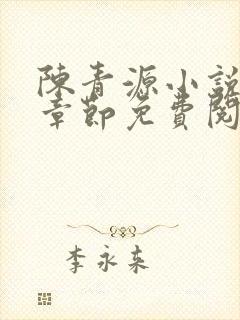 陳青源小說
章節免費閱
李永来